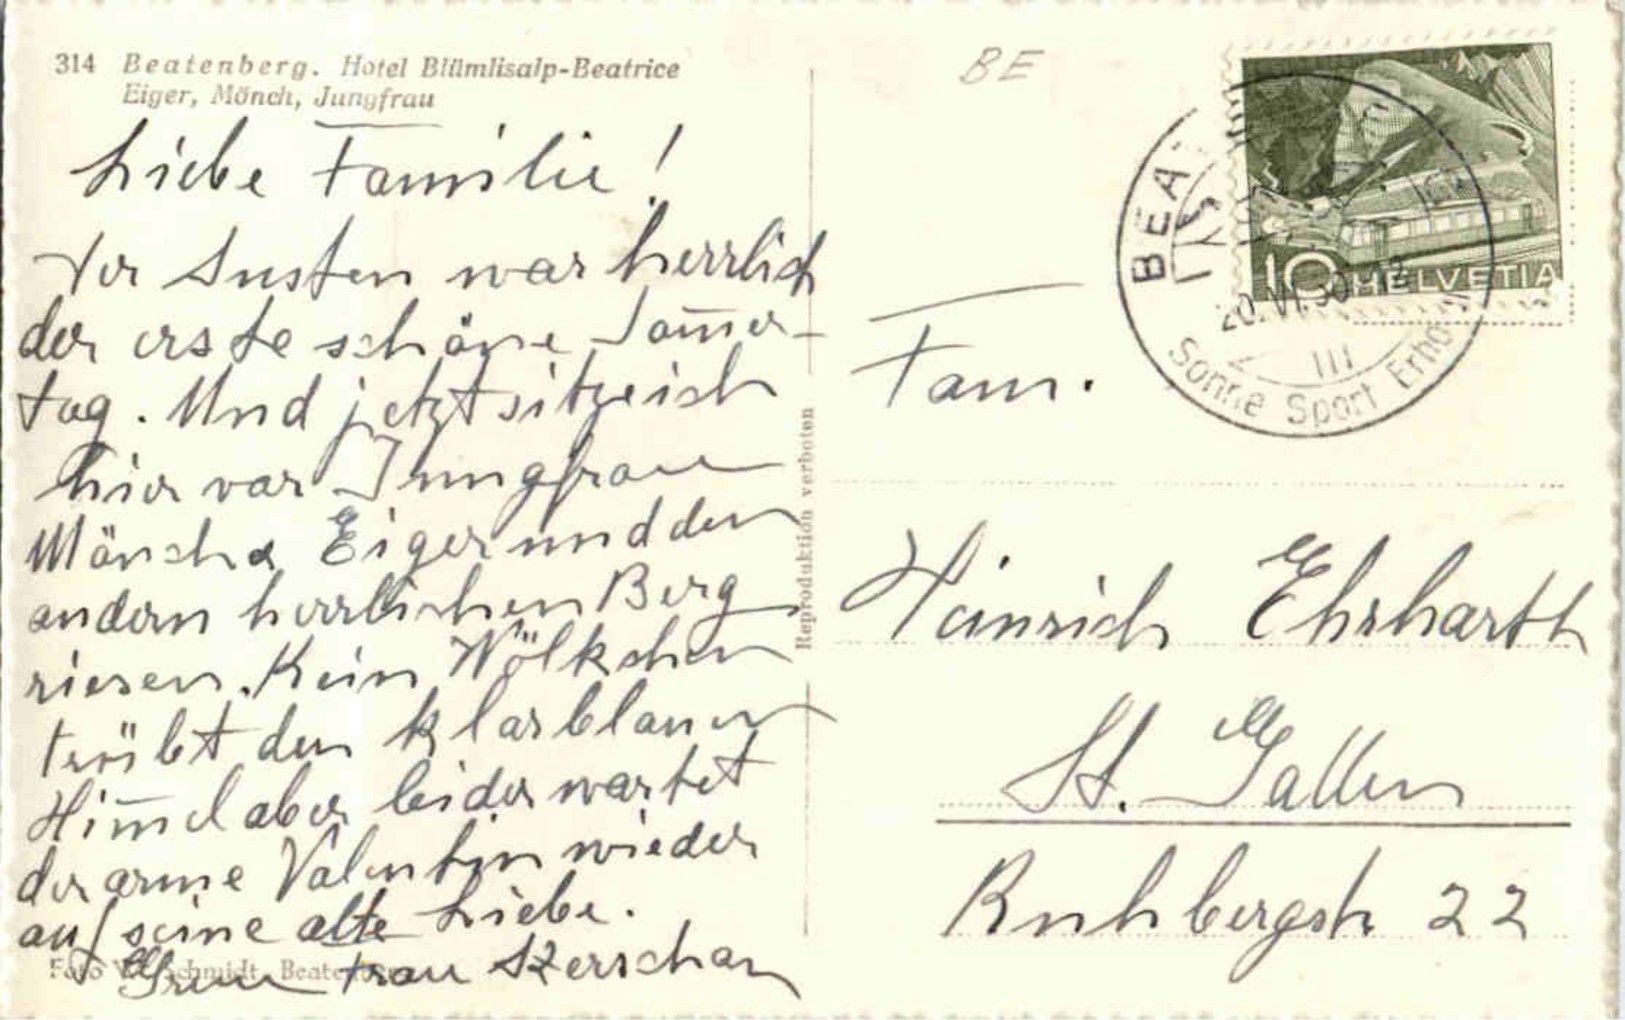 314 Beatenberg. Hotel Blümlisalp-Beatrice
Eiger, Mönch, Jungfrau
Liebe Familie!
Der Susten war herrlich
der erste schöne Som̅er-
tag. Und jetzt sitze ich
hier vor Jungfrau
Mönch & Eiger und den
andern herrlichen Berg
riesen. Kein Wölkchen
trübt den klarblauen
Him̅el aber leider wartet
der arme Valentin wieder
auf seine alte Liebe.
Frau
Foto Schmidt, Beatenberg
Reproduktion verboten
BE
BEA
20. VI. 50
III
Sonne Sport Erho
10 HELVETIA
Fam.
Heinrich Ehrharth
St. Gallen
Ruhbergstr 22